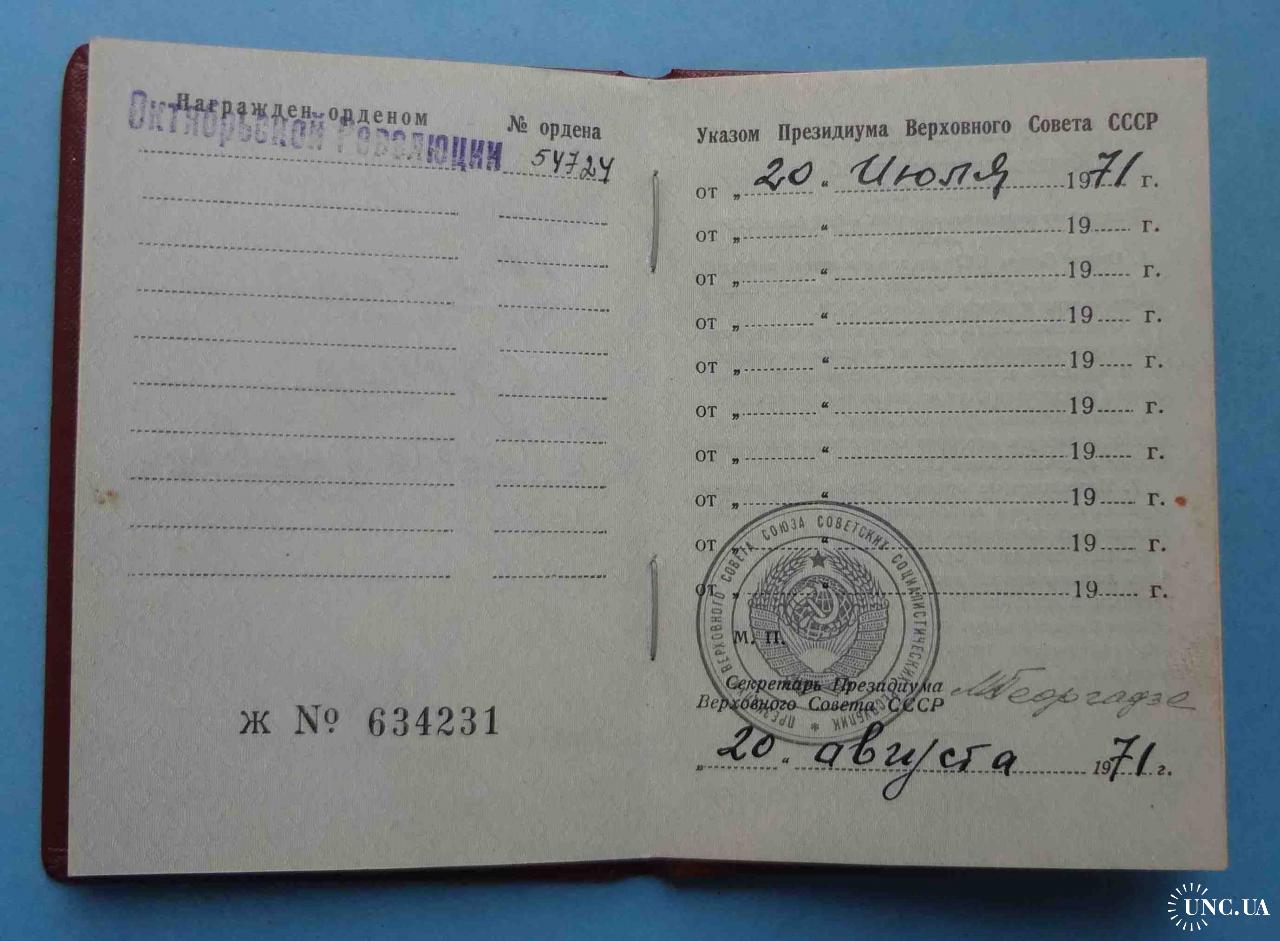 Награжден орденом
№ ордена
Октябрьской Революции
54724
Ж № 634231
Указом Президиума Верховного Совета СССР
от „ 20 “ Июля 1971 г.
от „ “ 19 г.
от „ “ 19 г.
от „ “ 19 г.
от „ “ 19 г.
от „ “ 19 г.
от „ “ 19 г.
от „ “ 19 г.
от „ “ 19 г.
от „ “ 19 г.
ПРЕЗИДИУМ ВЕРХОВНОГО СОВЕТА СОЮЗА СОВЕТСКИХ СОЦИАЛИСТИЧЕСКИХ РЕСПУБЛИК *
М. П.
Секретарь Президиума
Верховного Совета СССР
МГеоргадзе
„ 20 “ августа 1971 г.
UNC.UA